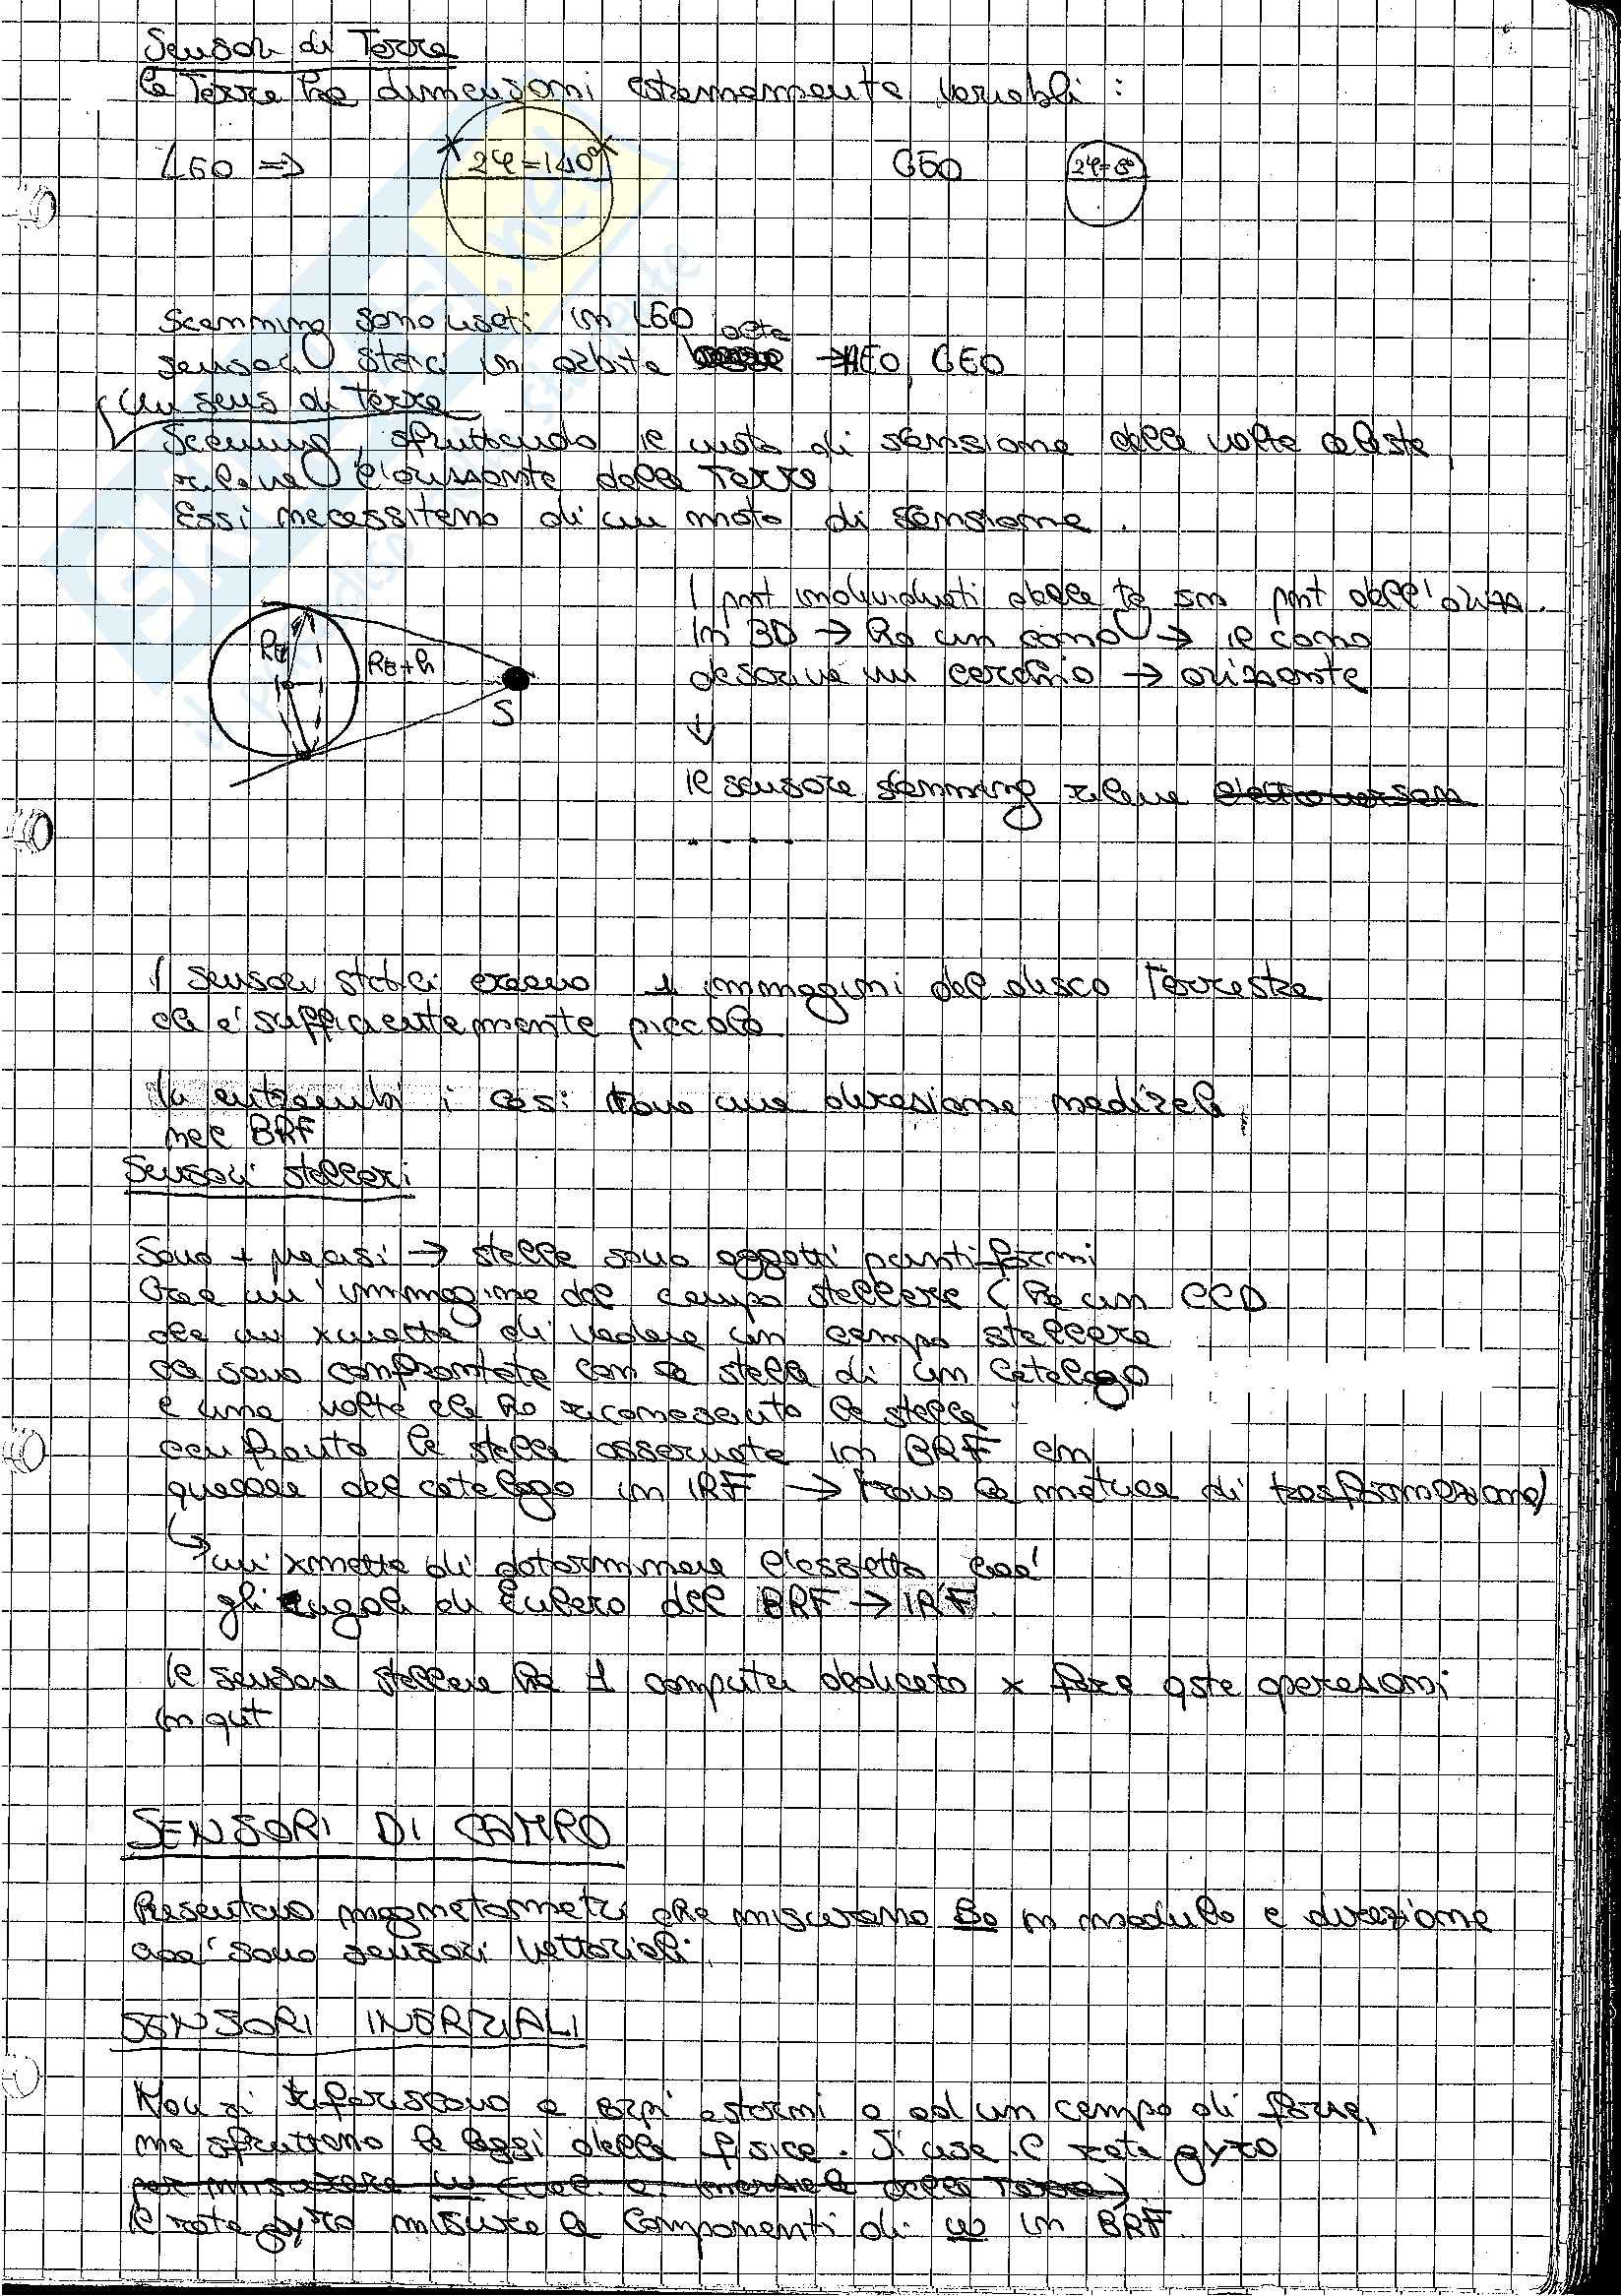 Sensori di Terra
la Terra ha dimensioni estremamente variabili :
LEO ⇒ 2φ=140° GEO 2φ=8°
Scanning sono usati in LEO
alte
sensori statici in orbite basse → HEO, GEO
un sens di Terra
Scanning, sfruttando il moto di scansione della volta celeste,
rileva l'orizzonte della Terra
Essi necessitano di un moto di scansione.
I pnt individuati dalle tg sn pnt dell'orizz.
In 3D → ho un cono → il cono
descrive un cerchio → orizzonte
RE
RE+h
S
↓
il sensore scanning rileva
....
I sensori statici creano 1 immagini del disco Terrestre
ch è sufficientemente piccolo
In entrambi i casi trovo una direzione nadirale
nel BRF
Sensori stellari
Sono + precisi → stelle sono oggetti puntiformi
Crea un'immagine del campo stellare (ha un CCD
che mi xmette di vedere un campo stellare
ch sono confrontate con le stelle di un catalogo
e una volta ch ho riconosciuto le stelle
confronto le stelle osservate in BRF cn
quelle del catalogo in IRF → trovo la matrice di trasformazione)
↳ mi xmette di determinare l'assetto cioè
gli angoli di Eulero del BRF → IRF.
Il sensore stellare ha 1 computer dedicato x fare qste operazioni
in qnt
SENSORI DI CAMPO
Presentano magnetometri che misurano Bo in modulo e direzione
cioè sono sensori vettoriali.
SENSORI INERZIALI
Non si riferiscono a corpi esterni o ad un campo di forze,
ma sfruttano le leggi della fisica. Si usa il rate gyro
per misurare ω (vel. a. inerziale della Terra)
Il rate gyro misura le componenti di ω in BRF.